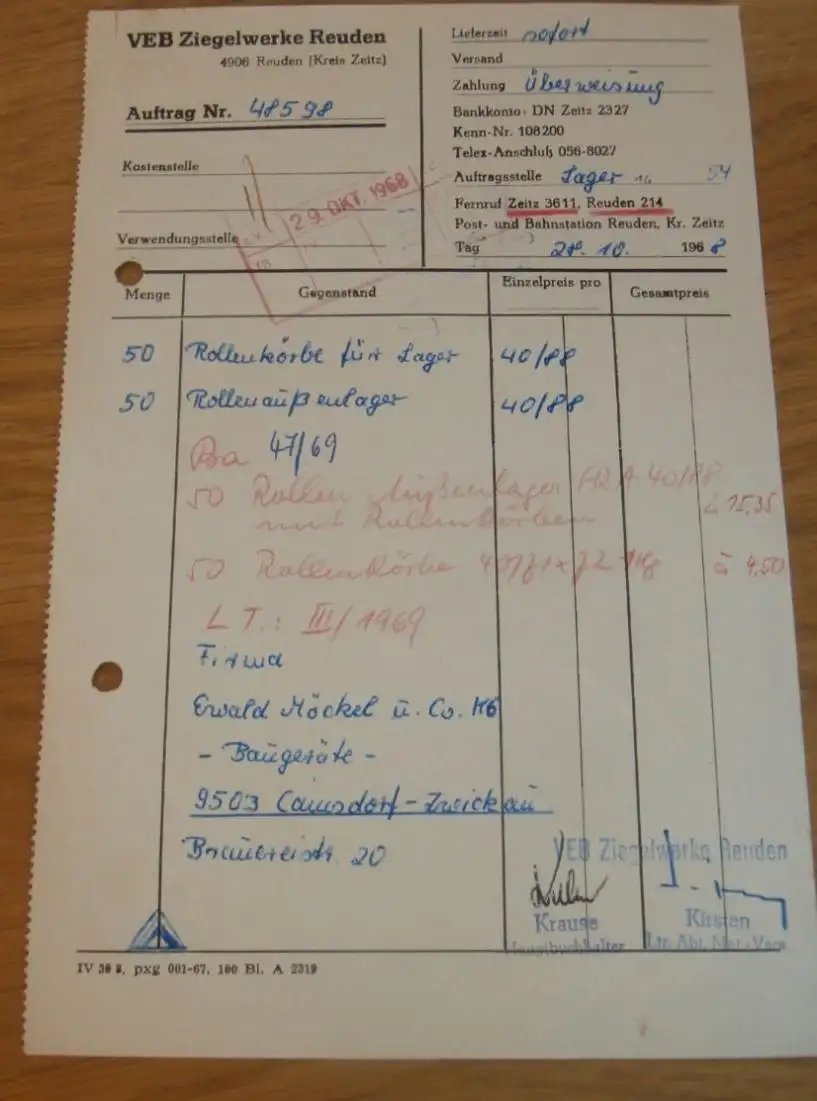 VEB Ziegelwerke Reuden
4906 Reuden (Kreis Zeitz)
Auftrag Nr. 48598
Kostenstelle
Verwendungsstelle
29. OKT. 1968
Lieferzeit sofort
Versand
Zahlung Überweisung
Bankkonto: DN Zeitz 2327
Kenn-Nr. 108200
Telex-Anschluß 058-8027
Auftragsstelle Lager 54
Fernruf Zeitz 3611, Reuden 214
Post- und Bahnstation Reuden, Kr. Zeitz
Tag 28. 10. 1968
Menge Gegenstand Einzelpreis pro Gesamtpreis
50 Rollenkörbe für Lager 40/88
50 Rollenaußenlager 40/88
47/69
50 Rollen Außenlager 40/88
mit Rollenkörben à 15,35
50 Rollenkörbe à 4,50
L T.: III/1969
Firma
Ewald Möckel u. Co. KG
- Baugeräte -
9503 Cainsdorf-Zwickau
Brauereistr. 20
VEB Ziegelwerke Reuden
Krause Kirsten
Hauptbuchhalter Ltr. Abt.
IV 30 8, pxg 001-67, 100 Bl. A 2319